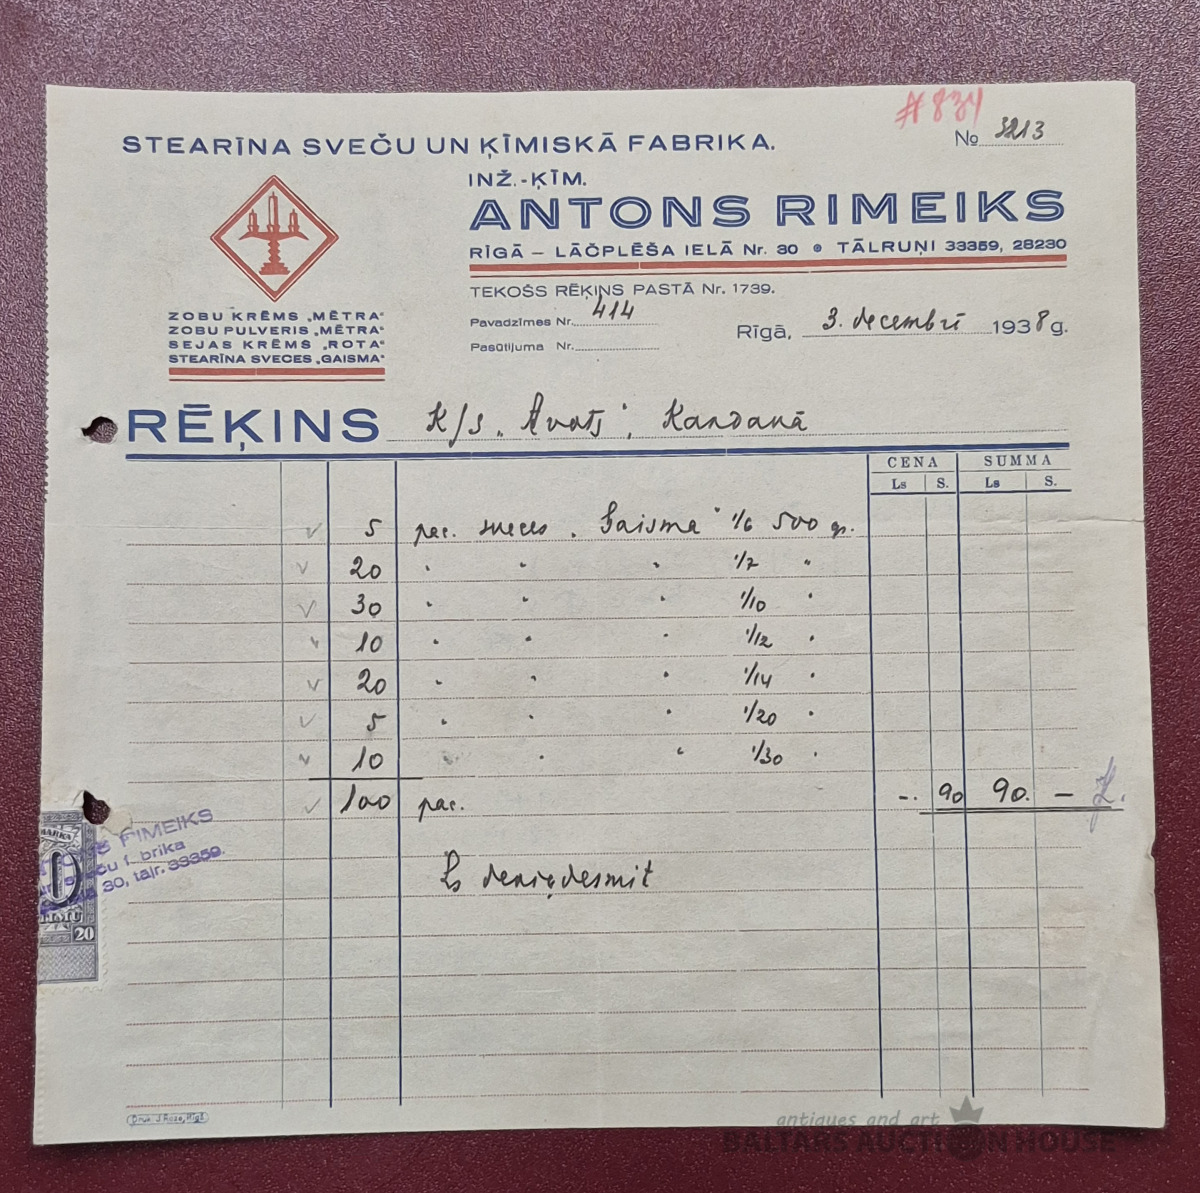 #834
№ 3213
STEARĪNA SVEČU UN ĶĪMISKĀ FABRIKA.
INŽ.-ĶĪM.
ANTONS RIMEIKS
RĪGĀ – LĀČPLĒŠA IELĀ Nr. 30 • TĀLRUŅI 33359, 28230
ZOBU KRĒMS „MĒTRA“
ZOBU PULVERIS „MĒTRA“
SEJAS KRĒMS „ROTA“
STEARĪNA SVECES „GAISMA“
TEKOŠS RĒĶINS PASTĀ Nr. 1739.
Pavadzīmes Nr. 414
Pasūtījuma Nr.
Rīgā, 3. decembrī 1938 g.
RĒĶINS K/S „Avots“, Kandavā
CENA SUMMA
Ls S. Ls S.
v 5 pac. sveces „Gaisma“ 1/6 500 gr.
v 20 " " " 1/7 "
v 30 " " " 1/10 "
v 10 " " " 1/12 "
v 20 " " " 1/14 "
v 5 " " " 1/20 "
v 10 " " " 1/30 "
v 100 pac. -. 90 90. —
Ls deviņdesmit
RIMEIKS
brika
30, tālr. 33359.
20
antiques and art
BALTARS AUCTION HOUSE